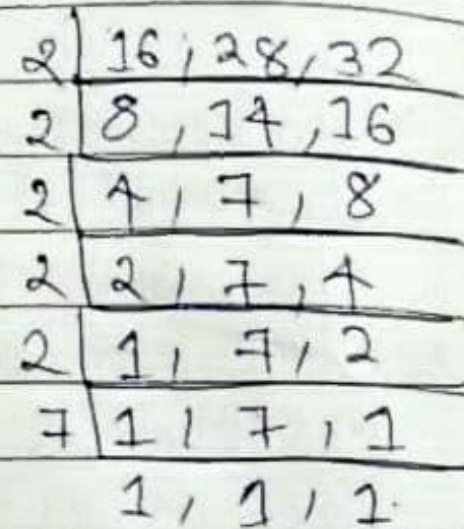 2 | 16, 28, 32
2 | 8, 14, 16
2 | 4, 7, 8
2 | 2, 7, 4
2 | 1, 7, 2
7 | 1, 7, 1
1, 1, 1.